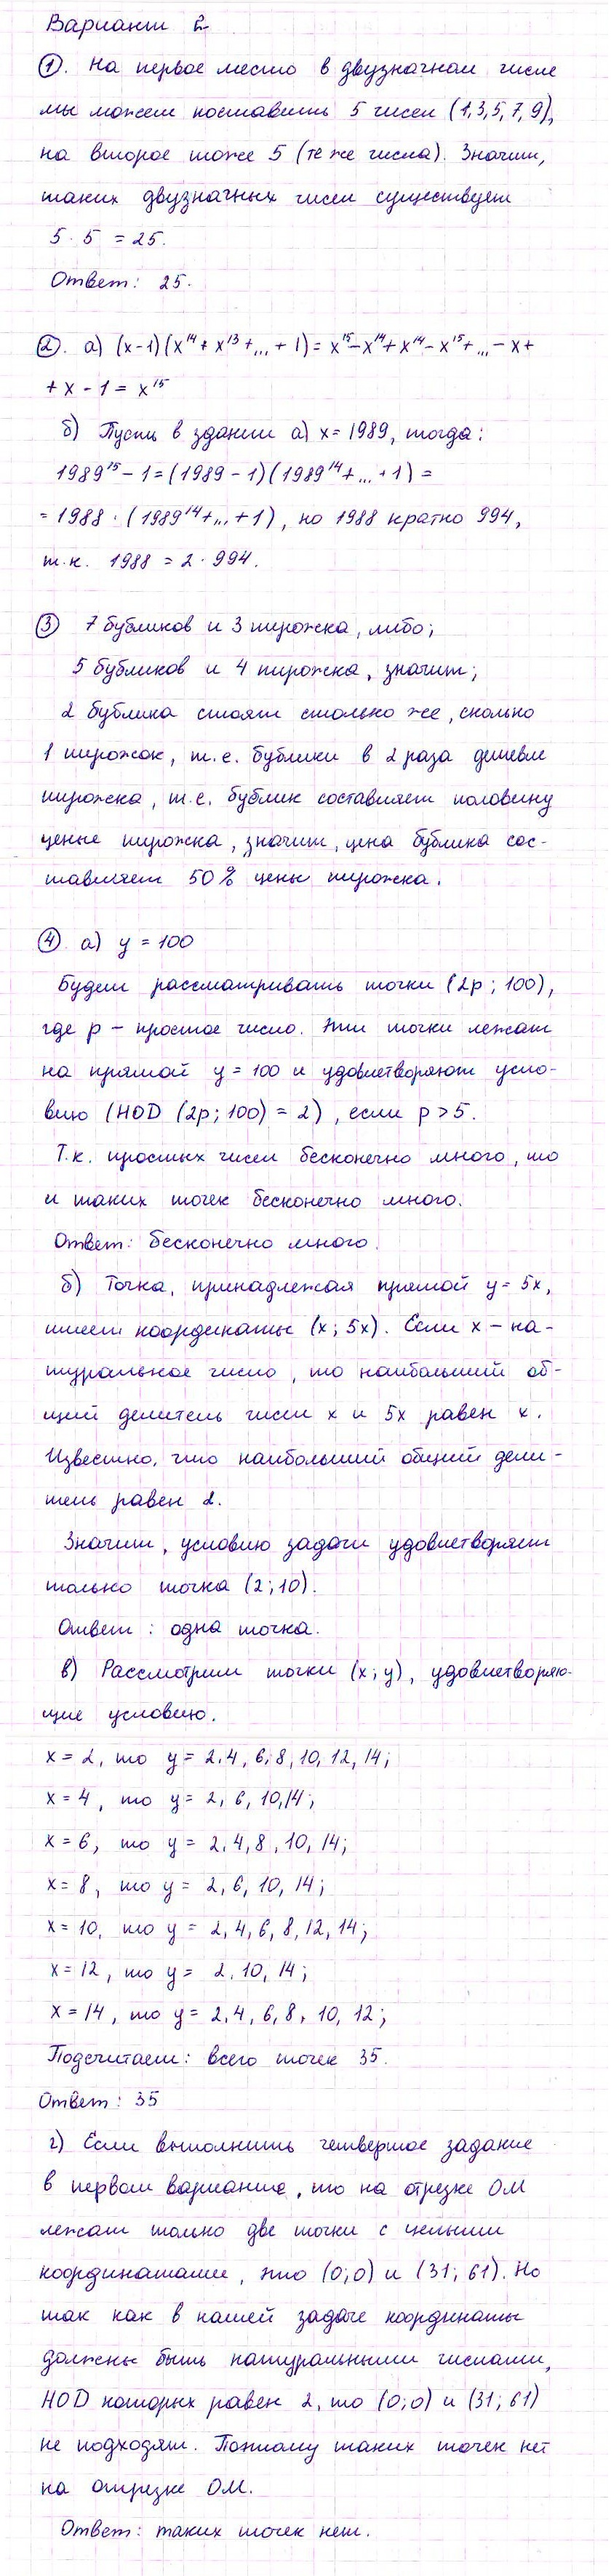 Вариант 2
1. На первое место в двузначном числе
мы можем поставить 5 чисел (1,3,5,7,9),
на второе тоже 5 (те же числа). Значит,
таких двузначных чисел существует
5 · 5 = 25.
Ответ: 25.
2. а) (x-1)(x¹⁴ + x¹³ +...+ 1) = x¹⁵ - x¹⁴ + x¹⁴ - x¹⁵ +... - x +
+ x - 1 = x¹⁵
б) Пусть в здании а) x = 1989, тогда:
1989¹⁵ - 1 = (1989 - 1)(1989¹⁴ +...+ 1) =
= 1988 · (1989¹⁴ +...+ 1), но 1988 кратно 994,
т.к. 1988 = 2 · 994.
3 7 бубликов и 3 пирожка, либо;
5 бубликов и 4 пирожка, значит;
2 бублика стоят столько же, сколько
1 пирожок, т.е. бублики в 2 раза дешевле
пирожка, т.е. бублик составляет половину
цены пирожка, значит, цена бублика сос-
тавляет 50% цены пирожка.
4. а) y = 100
Будем рассматривать точки (2p; 100),
где p - простое число. Эти точки лежат
на прямой y = 100 и удовлетворяют усло-
вию (НОD (2p; 100) = 2), если p > 5.
Т.к. простых чисел бесконечно много, то
и таких точек бесконечно много.
Ответ: бесконечно много.
б) Точка, принадлежая прямой y = 5x,
имеет координаты (x; 5x). Если x - на-
туральное число, то наибольший об-
щий делитель чисел x и 5x равен x.
Известно, что наибольший общий дели-
тель равен 2.
Значит, условию задачи удовлетворяет
только точка (2; 10).
Ответ: одна точка.
в) Рассмотрим точки (x; y), удовлетворяю-
щие условию.
x = 2, то y = 2, 4, 6, 8, 10, 12, 14;
x = 4, то y = 2, 6, 10, 14;
x = 6, то y = 2, 4, 8, 10, 14;
x = 8, то y = 2, 6, 10, 14;
x = 10, то y = 2, 4, 6, 8, 12, 14;
x = 12, то y = 2, 10, 14;
x = 14, то y = 2, 4, 6, 8, 10, 12;
Подсчитаем: всего точек 35.
Ответ: 35
г) Если выполнить четвертое задание
в первом варианте, то на отрезке ОМ
лежат только две точки с целыми
координатами, это (0; 0) и (31; 61). Но
так как в нашей задаче координаты
должны быть натуральными числами,
НОD которых равен 2, то (0; 0) и (31; 61)
не подходят. Поэтому таких точек нет
на отрезке ОМ.
Ответ: таких точек нет.